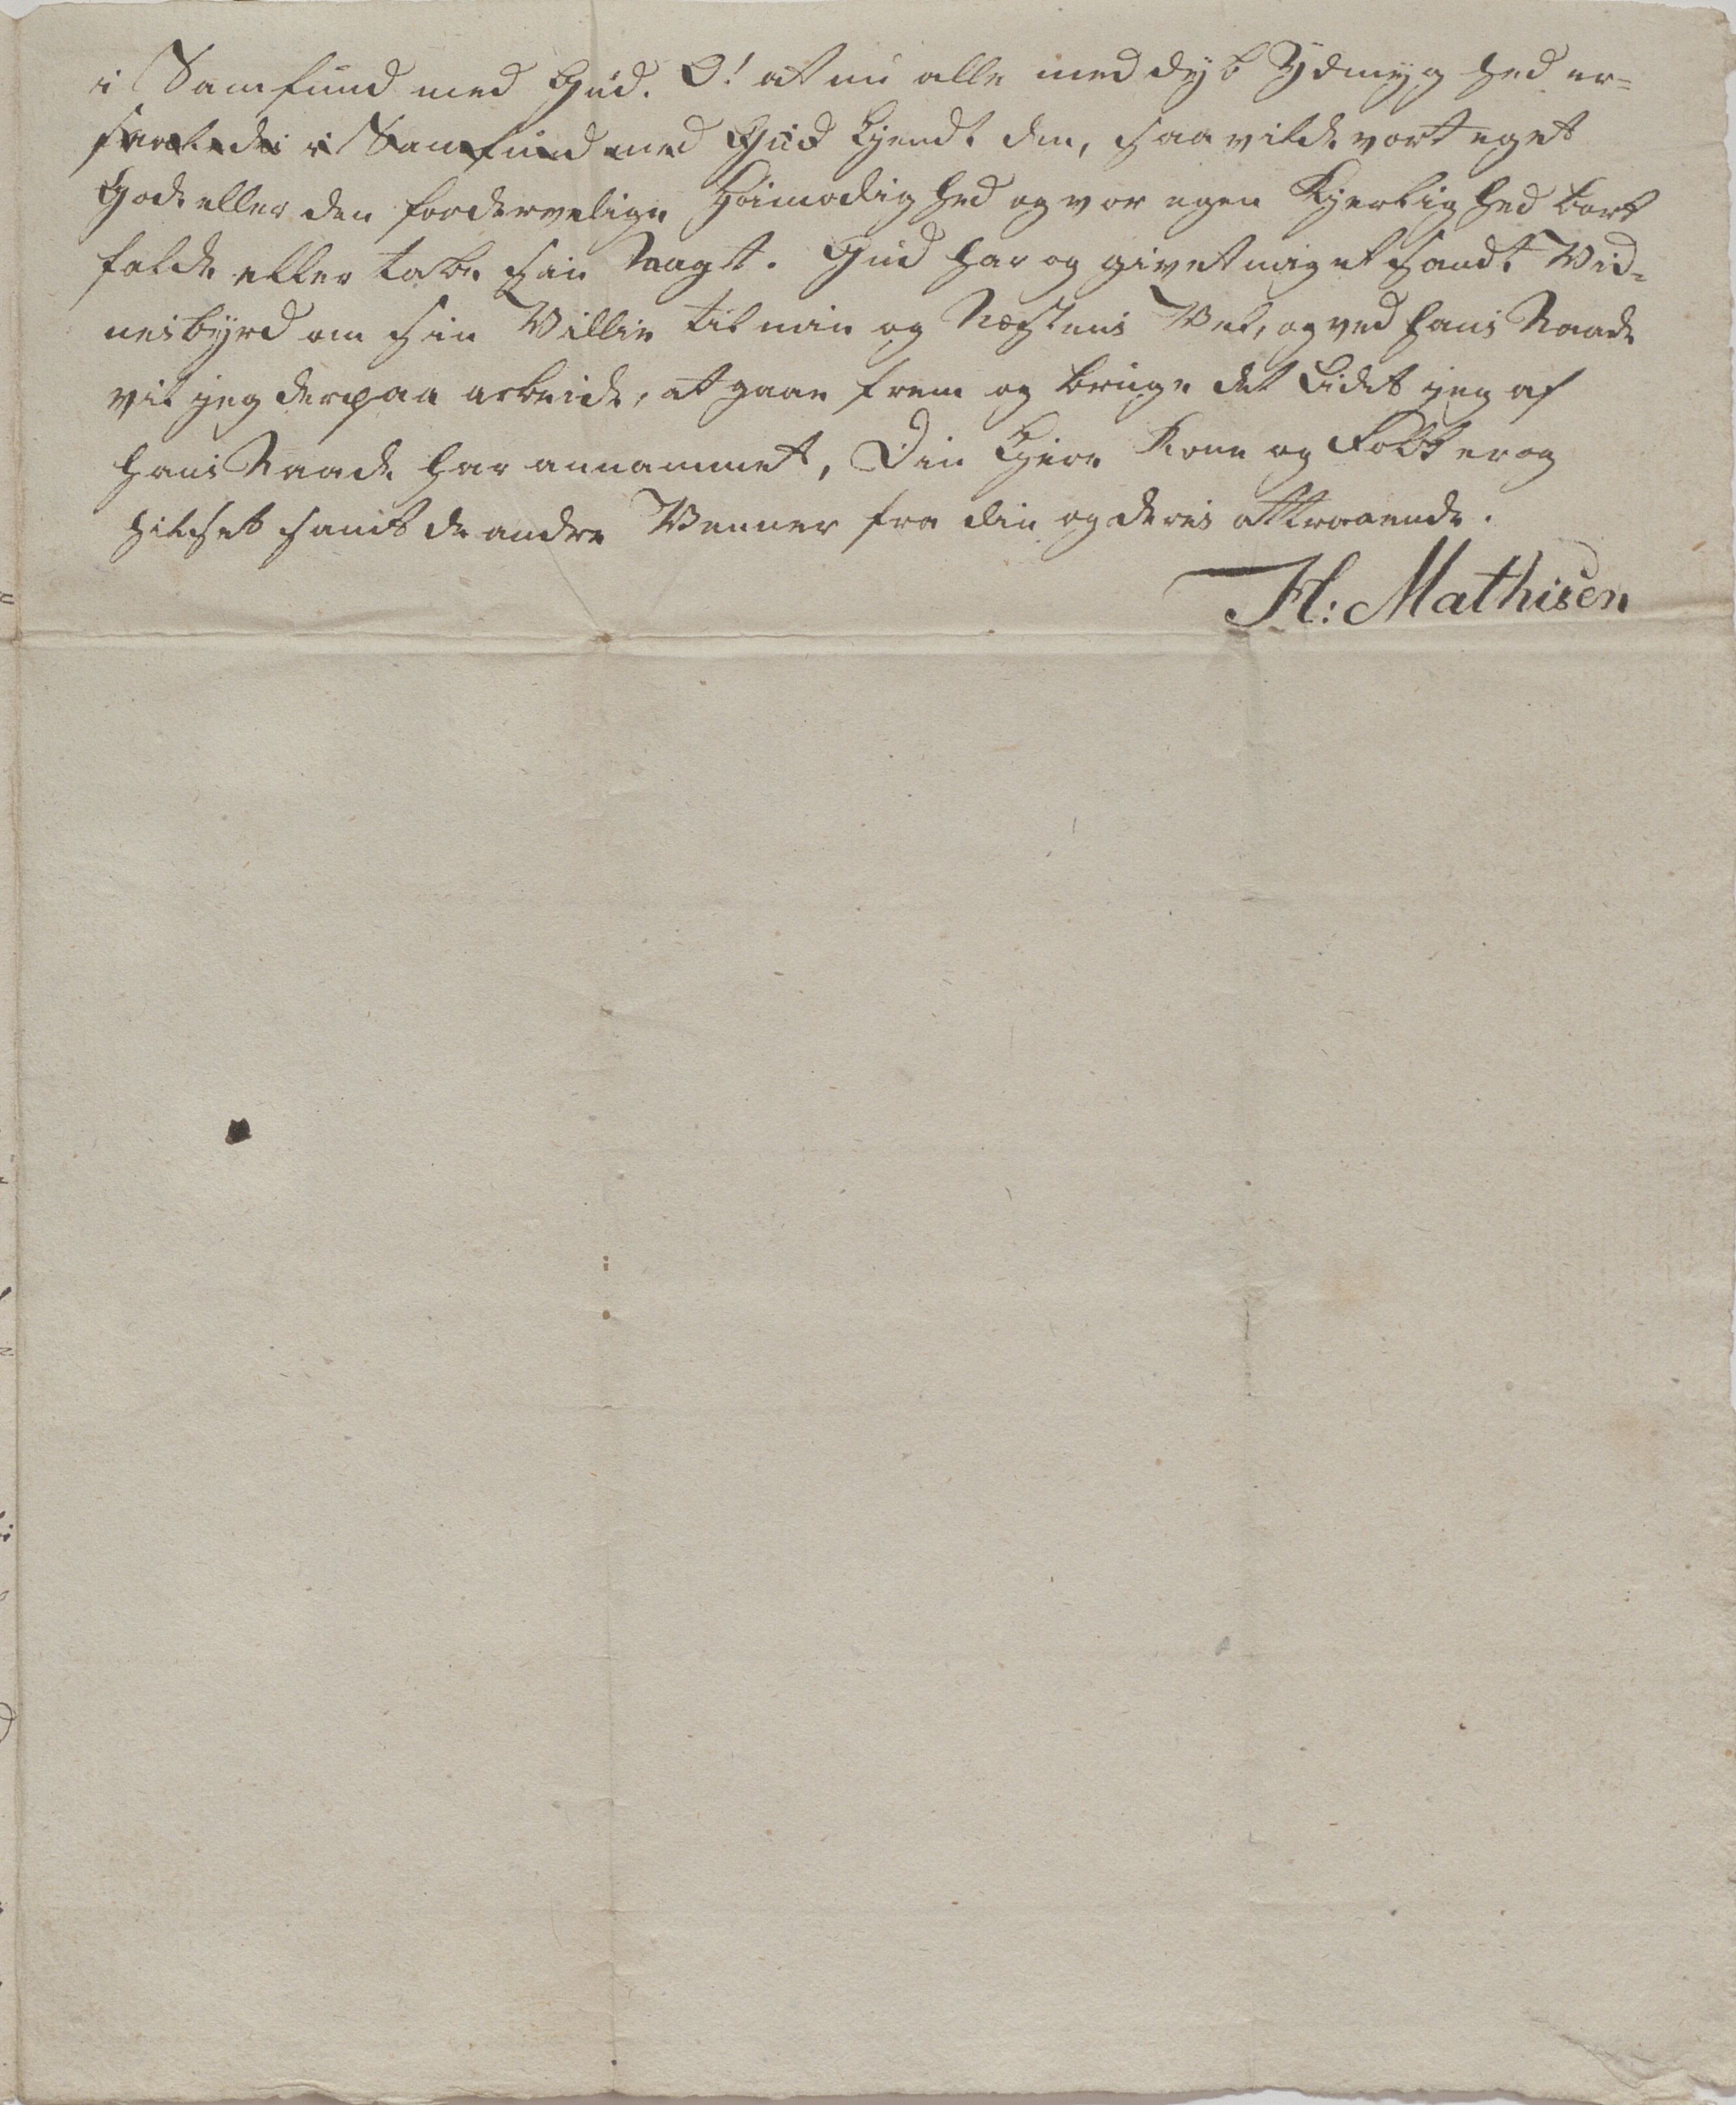 i Samfund med Gud. O! at nu alle med dyb Ydmyghed er=
i Samfund med Gud kjendt den, saa vilde vort eget
Gode eller den fordervelige Høimodighed og vor egen Kjerlighed bort
falde eller tabe sin Magt. Gud har og givet mig et sandt Vid=
nesbyrd om sin Villie til min og Næstens Vel, og ved hans Naade
vil jeg derpaa arbeide, at gaae frem og bruge det Lidet jeg af
hans Naade har annammet, Din kjere Kone og Folk er og
hilset samt de andre Venner fra din og deres attraaende.
H: Mathisen